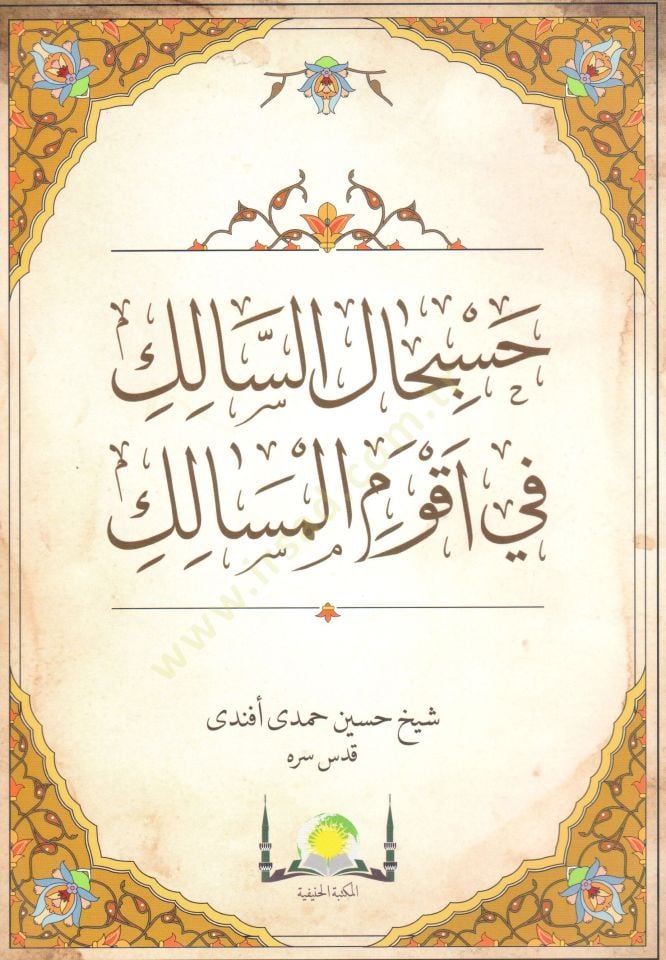 حَسْبِحَالِ السَّالِكِ
فِي اَقْوَمِ الْمَسَالِكِ
شيخ حسين حمدى أفندى
قدس سره
المكتبة الحنيفية